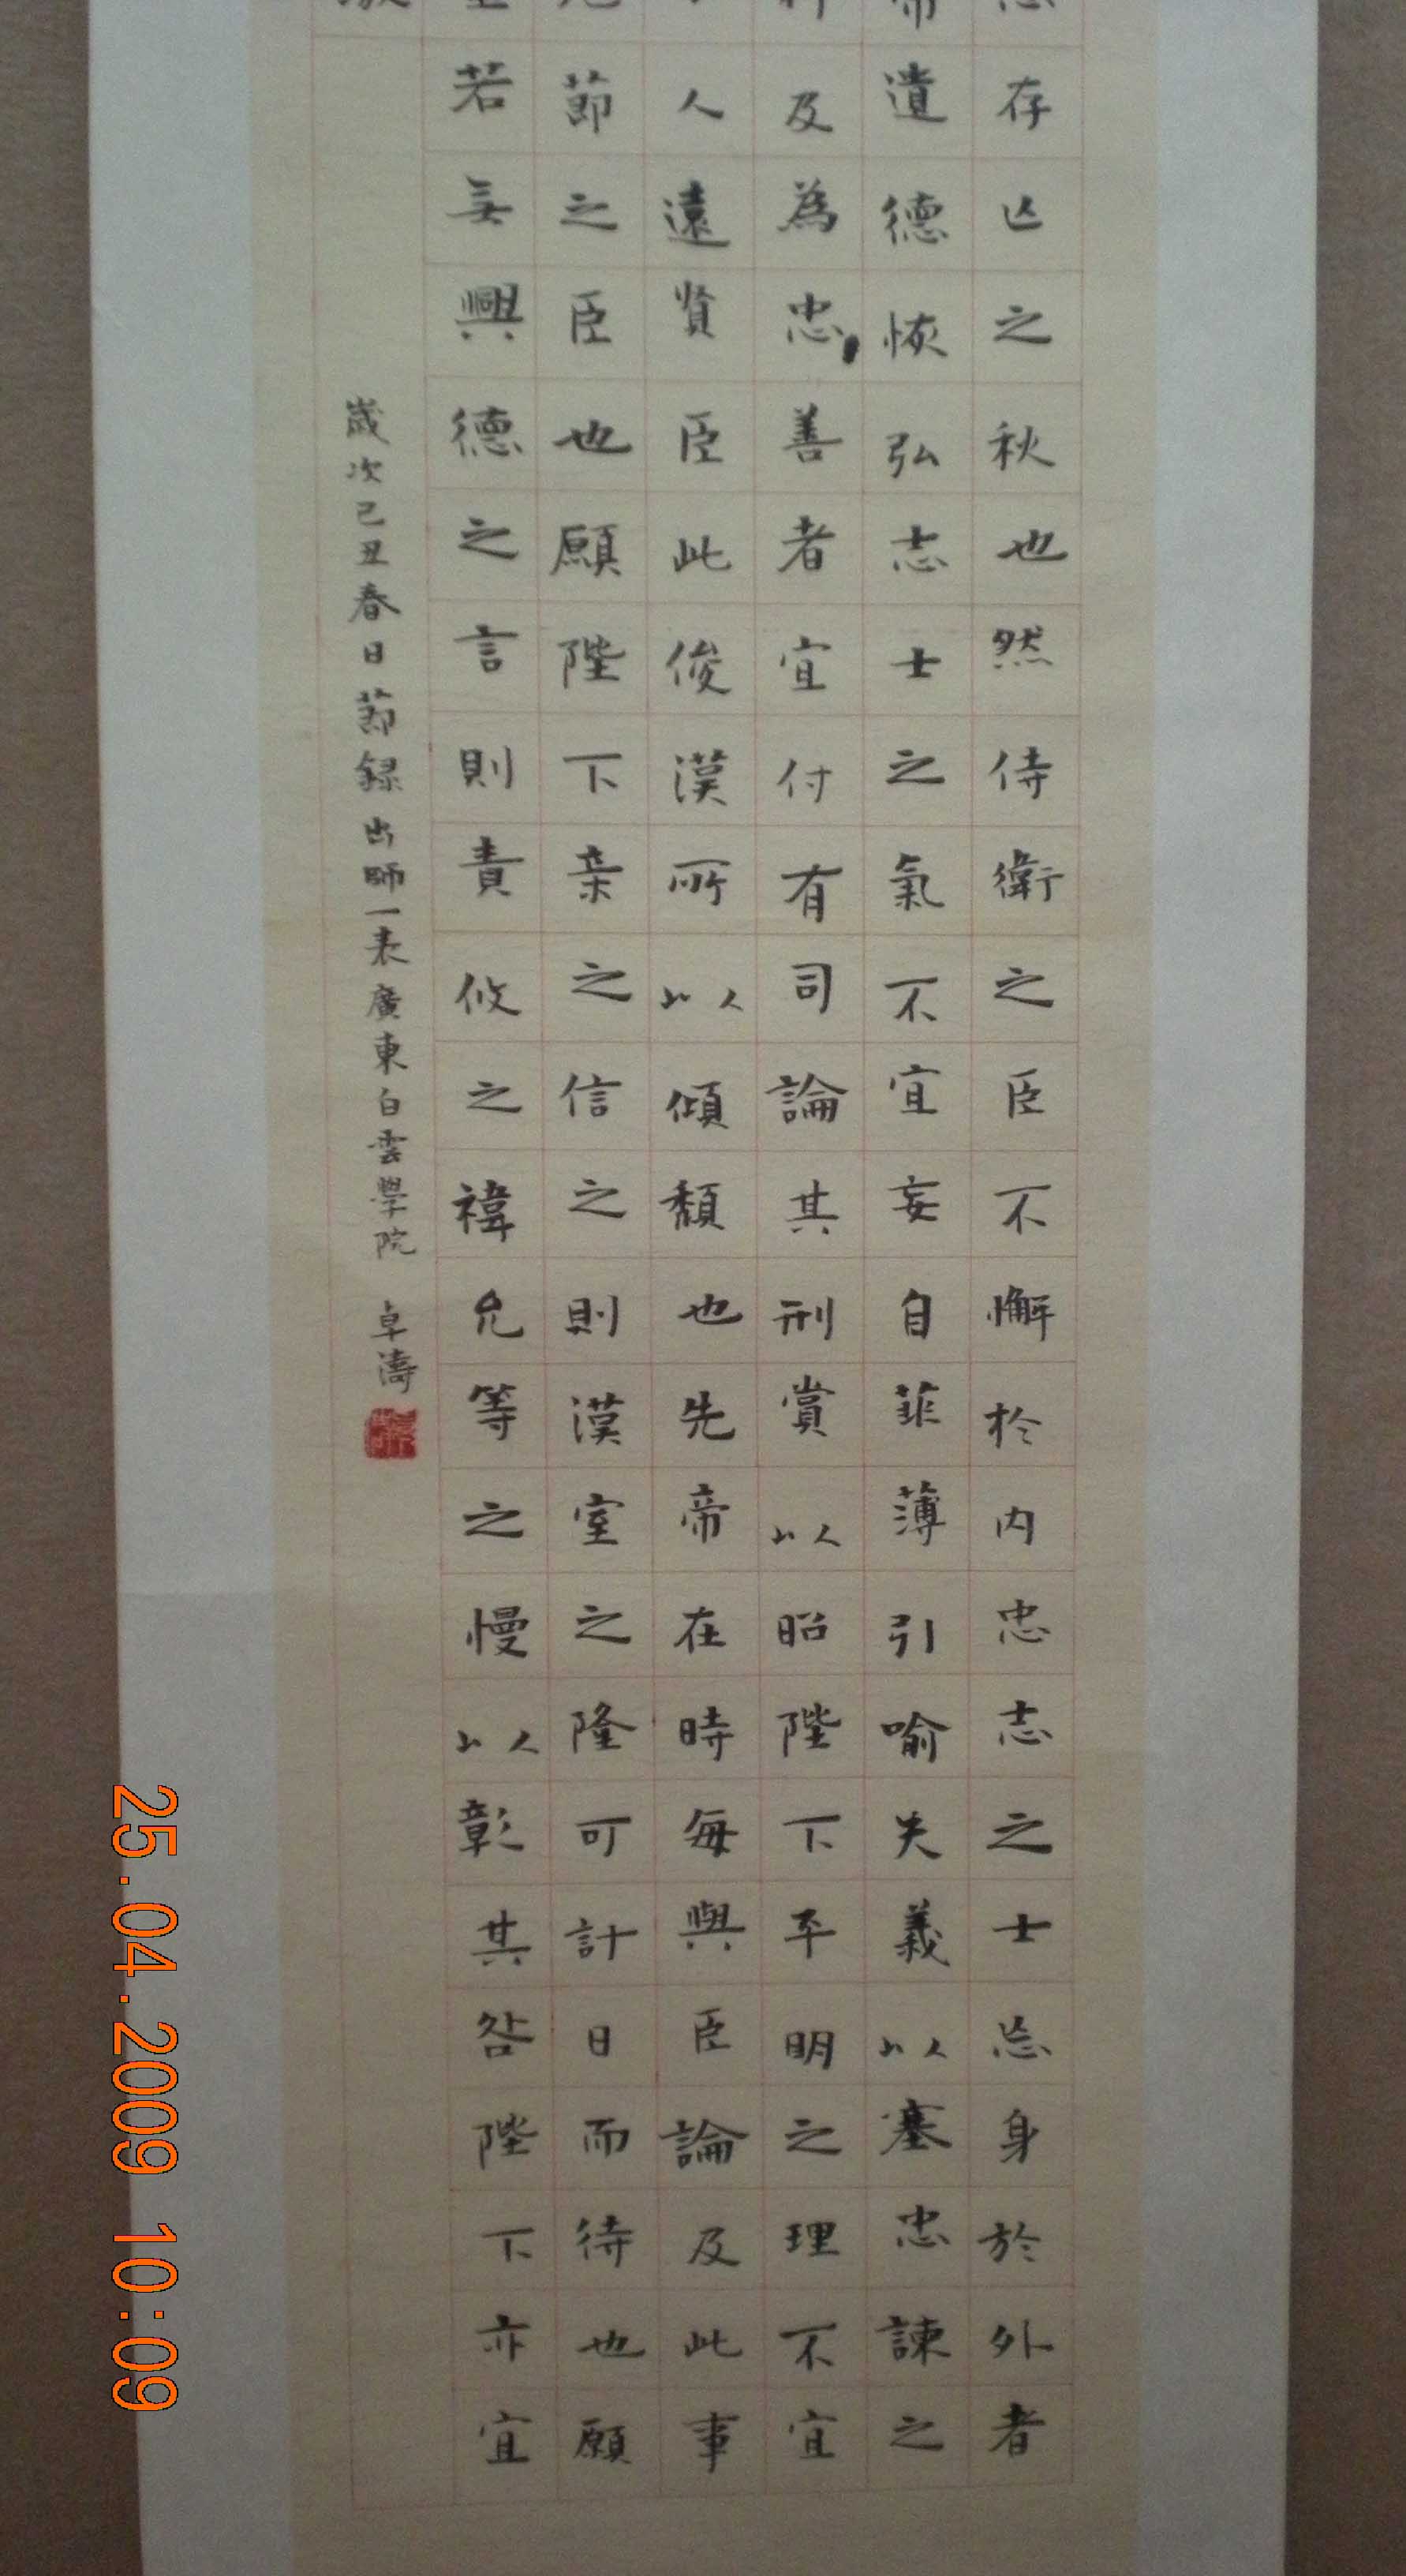 存亾之秋也然侍衛之臣不懈於内忠志之士忘身於外者
帝遺德恢弘志士之氣不宜妄自菲薄引喻失義以塞忠諫之
科及為忠善者宜付有司論其刑賞以昭陛下平明之理不宜
人遠賢臣此後漢所以傾頹也先帝在時每與臣論及此事
節之臣也願陛下亲之信之則漢室之隆可計日而待也願
若無興德之言則責攸之禕允等之慢以彰其咎陛下亦宜
歲次己丑春日節録出師一表廣東白雲學院 卓濤
25.04.2009 10:09